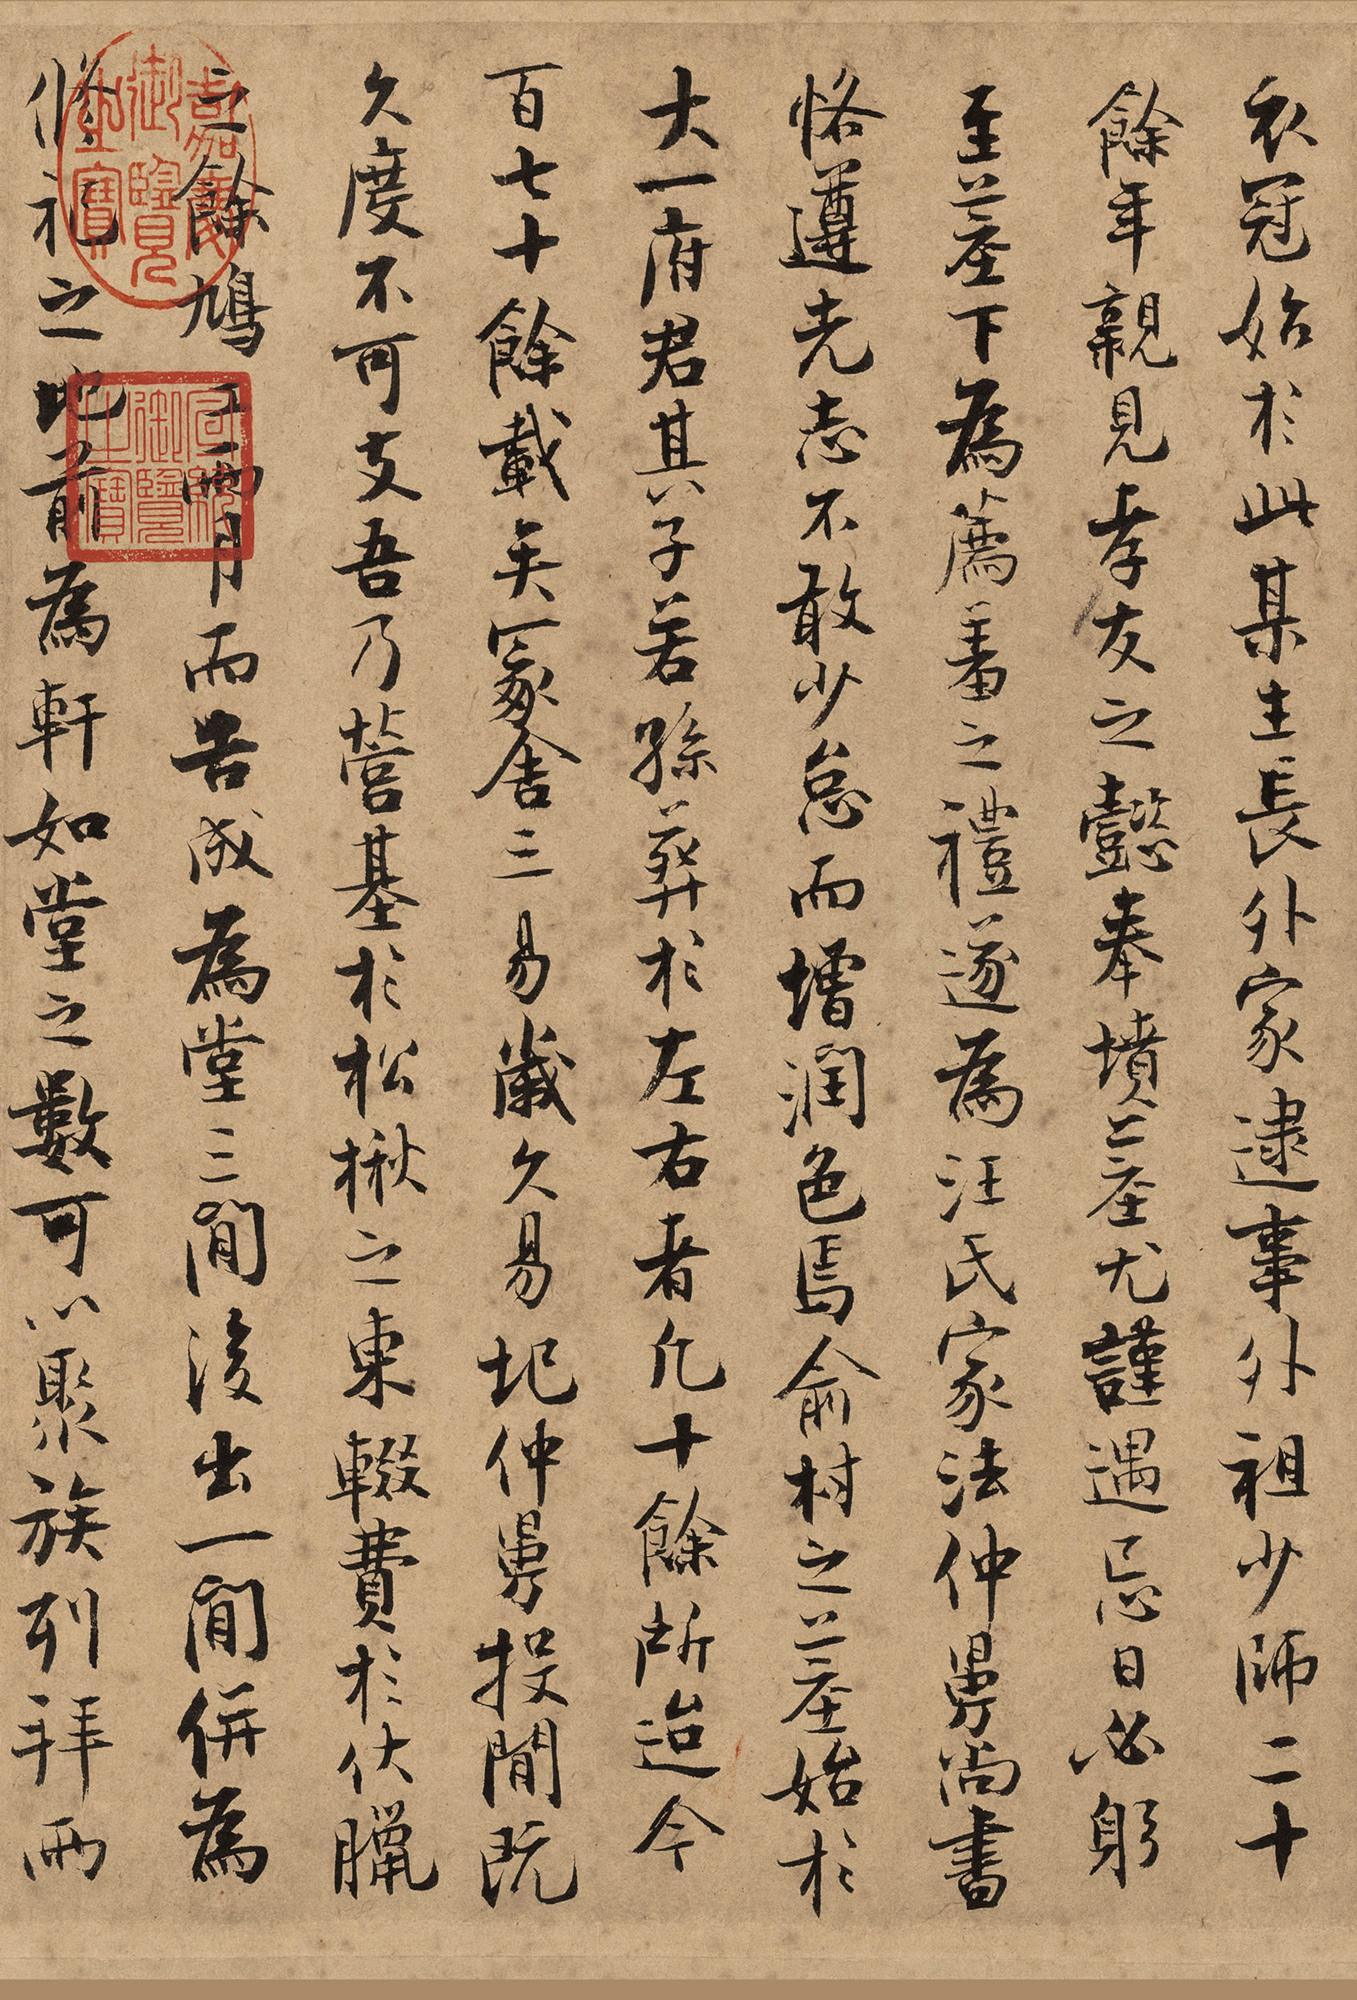 衣冠始於此某生長外家逮事外祖少師二十
餘年親見孝友之懿奉墳墓尤謹遇忌日必躬
至墓下為薦之禮遂為汪氏家法仲舅尚書
恪遵先志不敢少怠而增潤色焉俞村之墓始於
大一府君其子若孫葬於左右者凡十餘所迨今
百七十餘載矣冢舍三易歲久易圮仲舅投閒既
久度不可支吾乃營基於松楸之東輟費於伏臘
之餘鳩工兩月而告成為堂三間後出一間併為
修祀之地前為軒如堂之數可以聚族列拜兩
嘉慶御覽之寶
宣統御覽之寶